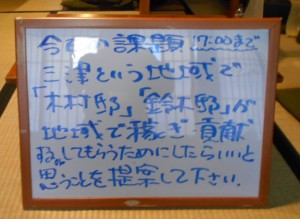 今日の課題 17:00まで
三津という地域で
「木村邸」「鈴木邸」が
地域で稼ぎ貢献
する。してもらうためにしたらいいと
思うことを提案して下さい.